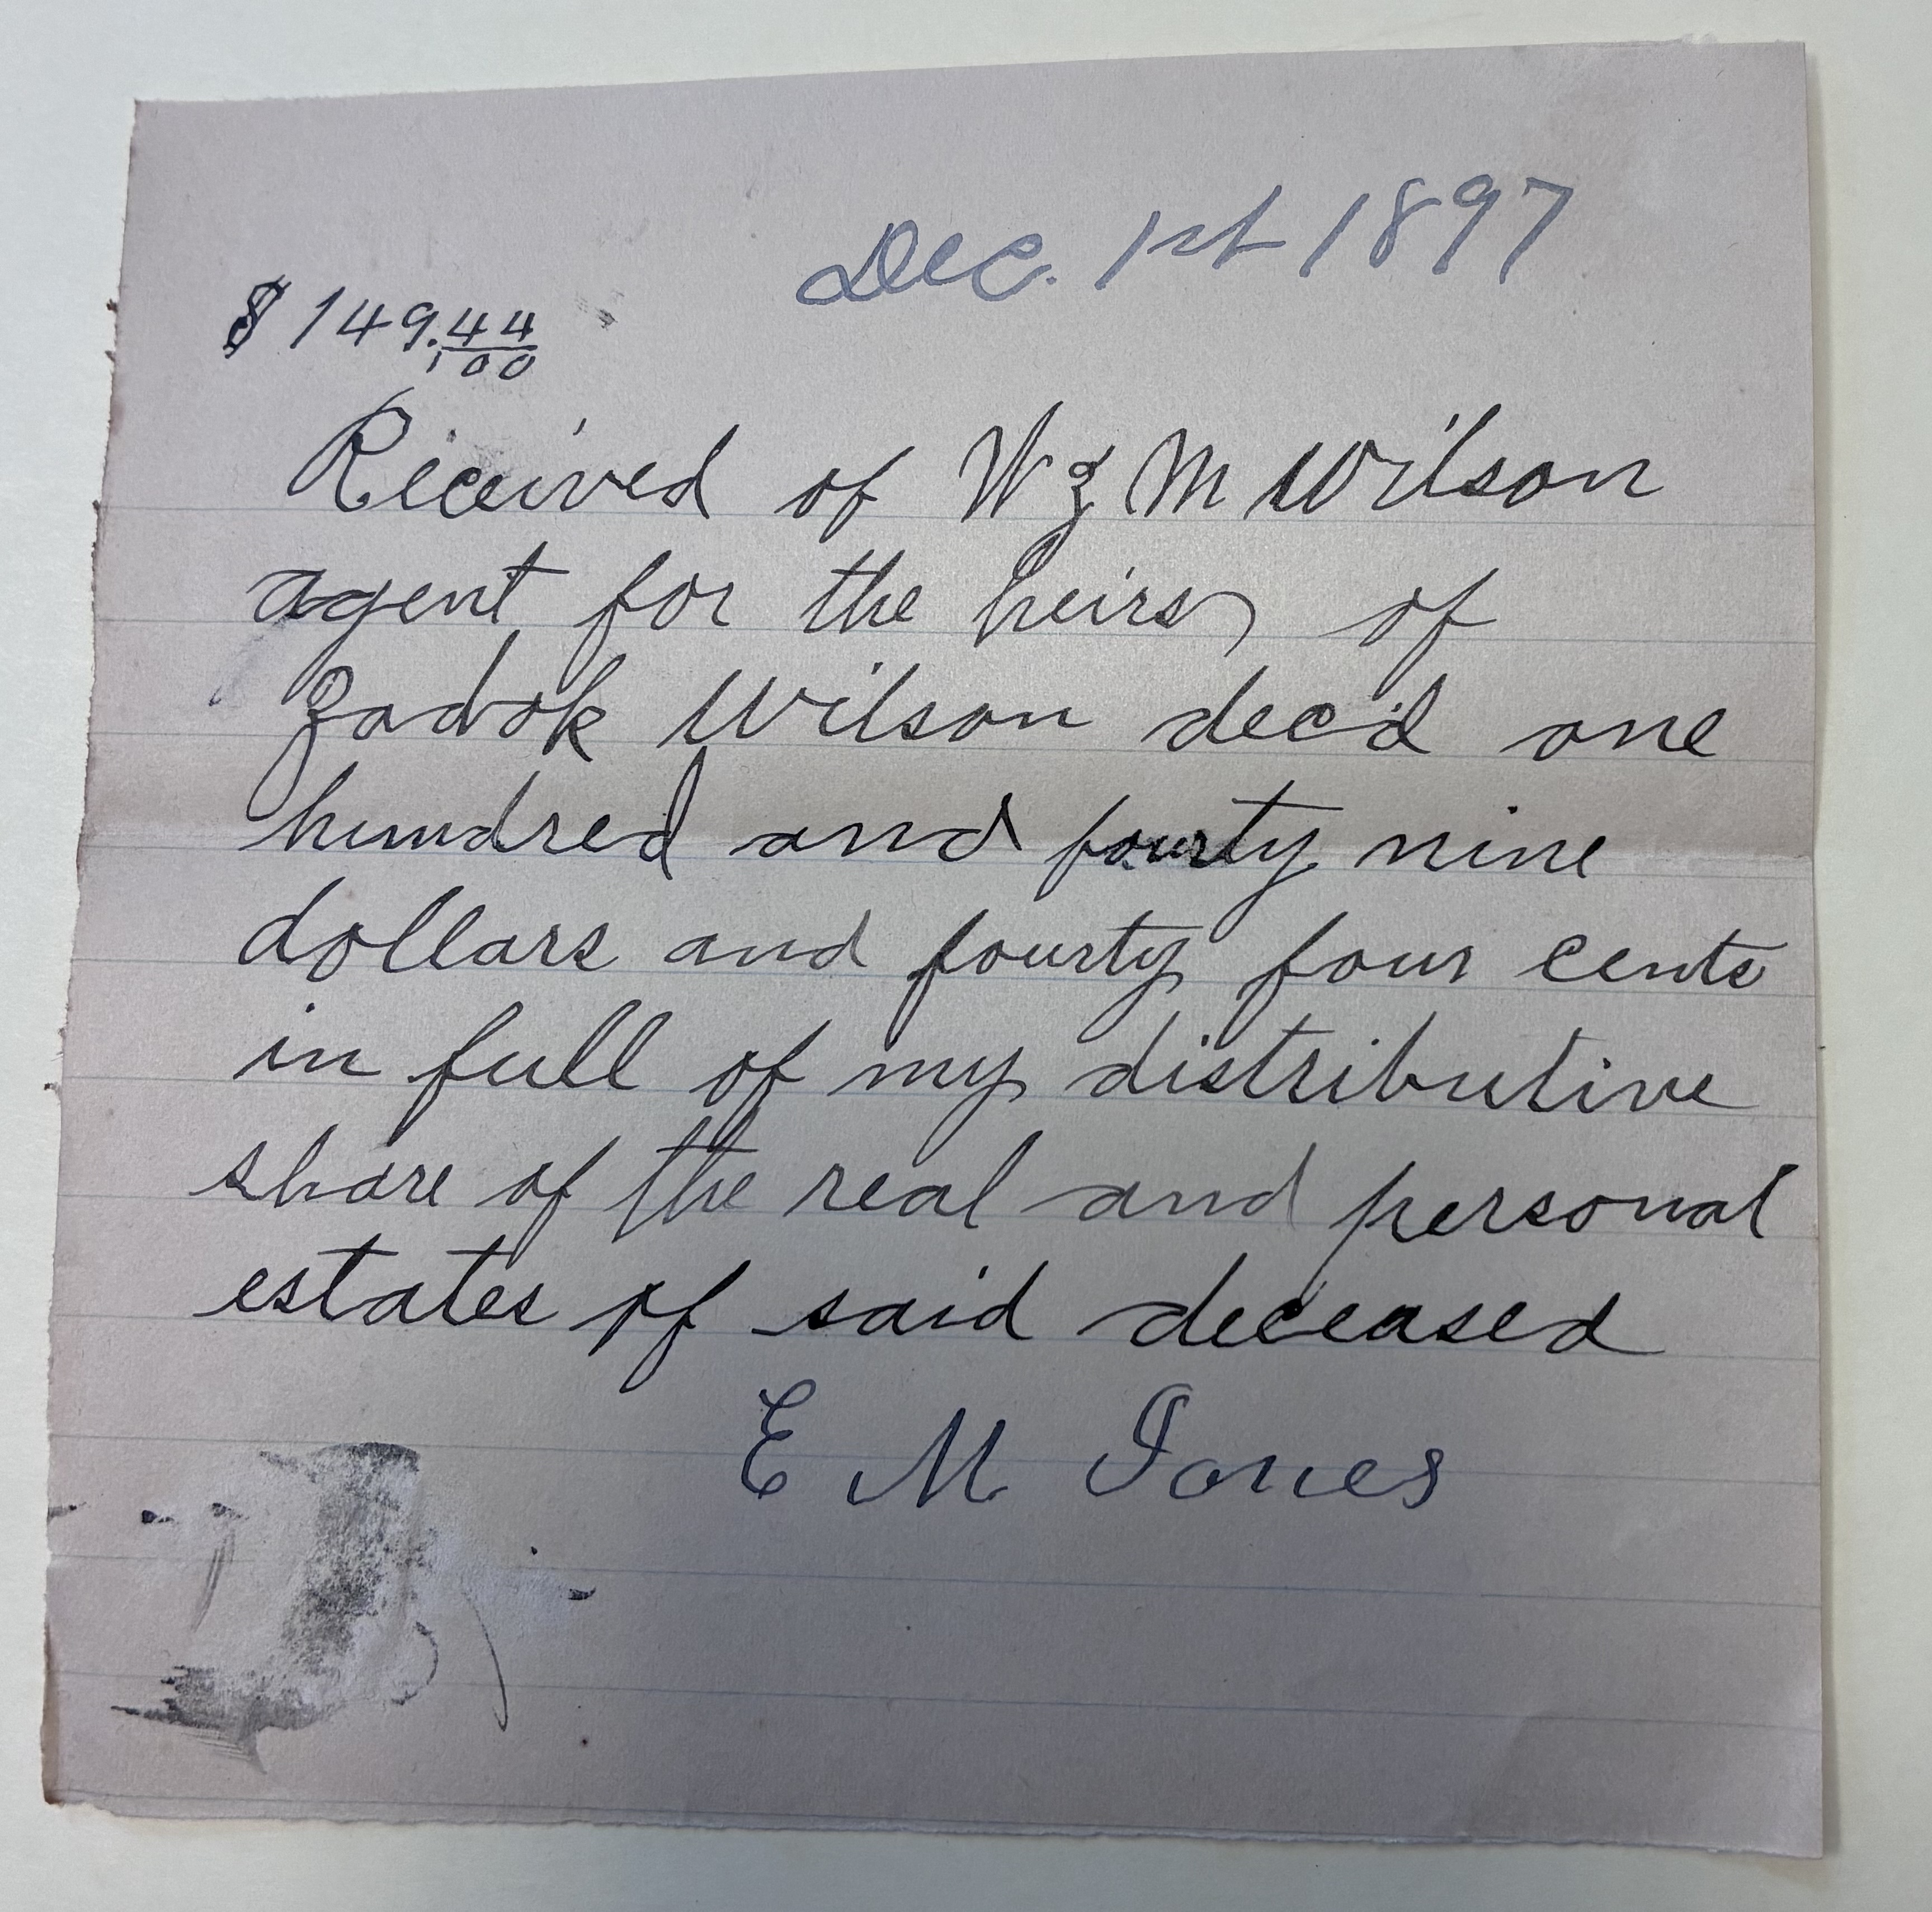 Dec. 1st 1897
$149.44/100
Received of W Z M Wilson
agent for the heirs of
Zadok Wilson dec'd one
hundred and fourty nine
dollars and fourty four cents
in full of my distributive
share of the real and personal
estates of said deceased
E M Jones